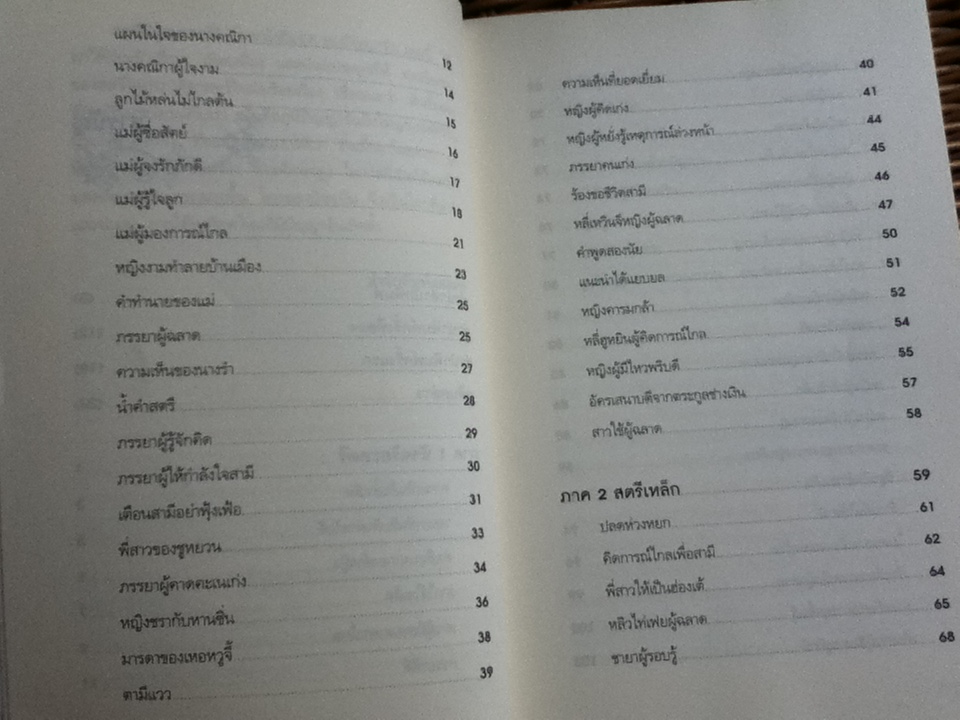 แผนในใจของนางคณิกา 12
นางคณิกาผู้ใจงาม 14
ลูกไม้หล่นไม่ไกลต้น 15
แม่ผู้ซื่อสัตย์ 16
แม่ผู้จงรักภักดี 17
แม่ผู้รู้ใจลูก 18
แม่ผู้มองการณ์ไกล 21
หญิงงามทำลายบ้านเมือง 23
คำทำนายของแม่ 25
ภรรยาผู้ฉลาด 25
ความเห็นของนางรำ 27
น้ำคำสตรี 28
ภรรยาผู้รู้จักคิด 29
ภรรยาผู้ให้กำลังใจสามี 30
เตือนสามีอย่าฟุ้งเฟ้อ 31
พี่สาวของชูหยวน 33
ภรรยาผู้คาดคะเนเก่ง 34
หญิงชรากับหานซิ่น 36
มารดาของเหอหวูจี้ 38
ตามีแวว 39
ความเห็นที่ยอดเยี่ยม 40
หญิงผู้คิดเก่ง 41
หญิงผู้หยั่งรู้เหตุการณ์ล่วงหน้า 44
ภรรยาคนเก่ง 45
ร้องขอชีวิตสามี 46
หลี่เหวินจีหญิงผู้ฉลาด 47
คำพูดสองนัย 50
แนะนำได้แยบยล 51
หญิงคารมกล้า 52
หลี่ฮูหยินผู้คิดการณ์ไกล 54
หญิงผู้มีไหวพริบดี 55
อัครเสนาบดีจากตระกูลช่างเงิน 57
สาวใช้ผู้ฉลาด 58
ภาค 2 สตรีเหล็ก 59
ปลดห่วงหยก 61
คิดการณ์ไกลเพื่อสามี 62
พี่สาวให้เป็นฮ่องเต้ 64
หลิวไท่เฟยผู้ฉลาด 65
ชายาผู้รอบรู้ 68